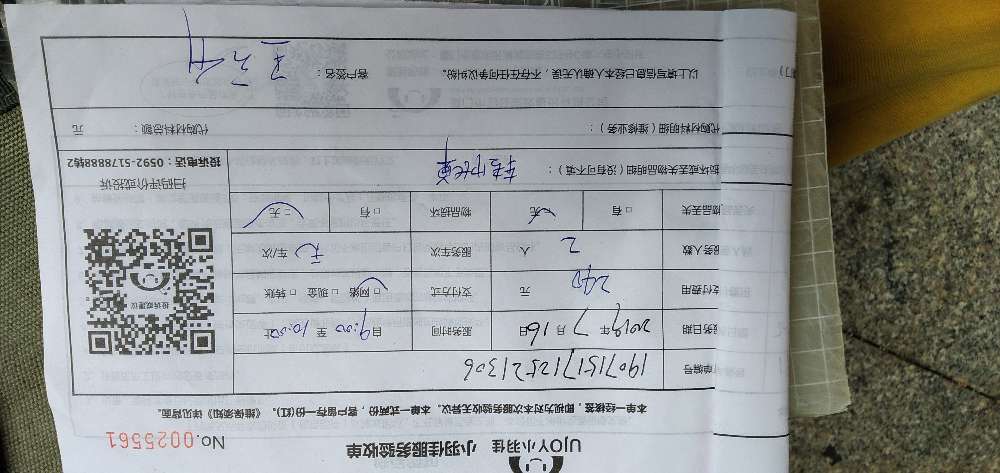 UJOY小羽佳 小羽佳服务验收单
No.0025561
本单一经核签，即视为对本次服务验收无异议。本单一式两份，客户留存一份(红)。《维保须知》详见背面。
单编号 1907151712521306
务日期 2019年7月16日 服务时间 自9:00至10:00止
支付费用 240 元 支付方式 □网络 □现金 □转账
务人数 2 人 服务车次 无 车/次
物品丢失 □有 □无 物品损坏 □有 □无
投诉或建议
扫码评价或投诉
投诉电话：0592-5178888转2
损坏或丢失物品明细（没有可不填）：
代购材料明细（维修业务）： 代购材料总额： 元
以上填写信息已经本人确认无误，不存在任何争议纠纷。 客户签名：